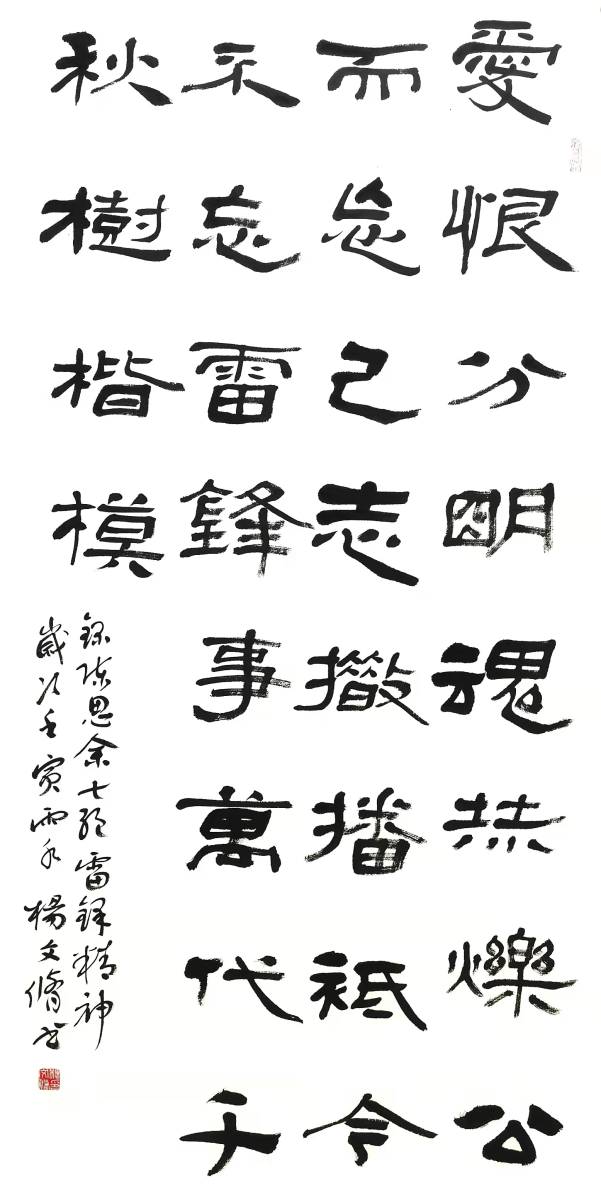 愛恨分明魂赫爍公
而忘己志撒播祇今
不忘雷鋒事萬代千
秋樹楷模
錄陳思余七絕雷鋒精神
歲次壬寅雨水楊文脩書